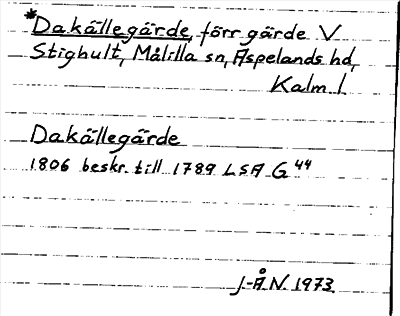 *Dakällegärde, förr gärde V
Stighult, Målilla sn, Aspelands hd,
Kalm l.
Dakällegärde
1806 beskr. till 1789 LSA G 44
J-Å N. 1973.